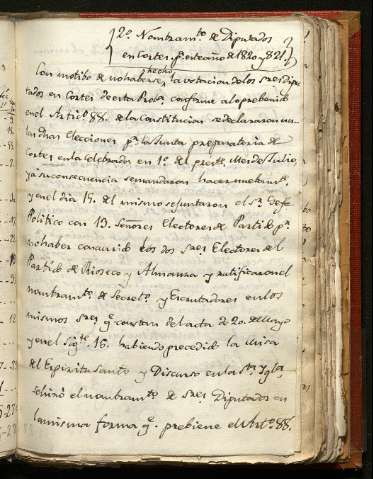 2º. Nombramto. de Diputados
en Cortes pa. este año de 1820 y 821
hecho
Con motibo de no haberse, la votacion de los Sres. Dipu
tados en Cortes de esta Proba. conforme a lo prebenido
en el Artio. 88. de la Constitucion se declararon nu-
las dhas Elecciones pr. la Junta preparatoria de
Cortes en la celebrada en 1º. de preste. Mes de Julio,
y a su consecuencia se mandaron hacer nuebamte.
y en el dia 15. del mismo se juntaron el Sr. Gefe
Politico con 19. Señores Electores de Partido pr.
no haber concurrido los dos Sres. Electores del
Partido de Rioseco y Almanza y ratificaron el
nombramto. de Secreto. y Escrutadores en los
mismos Sres. qe. constan del acta de 20. de Mayo
y en el Sigte. 16. habiendo precedido la Misa
del Espiritu Santo y Discurso en la Sta. Yglea.
se hizo el nombramto. de Sres. Diputados en
la misma forma qe. prebiene el Arto. 88.